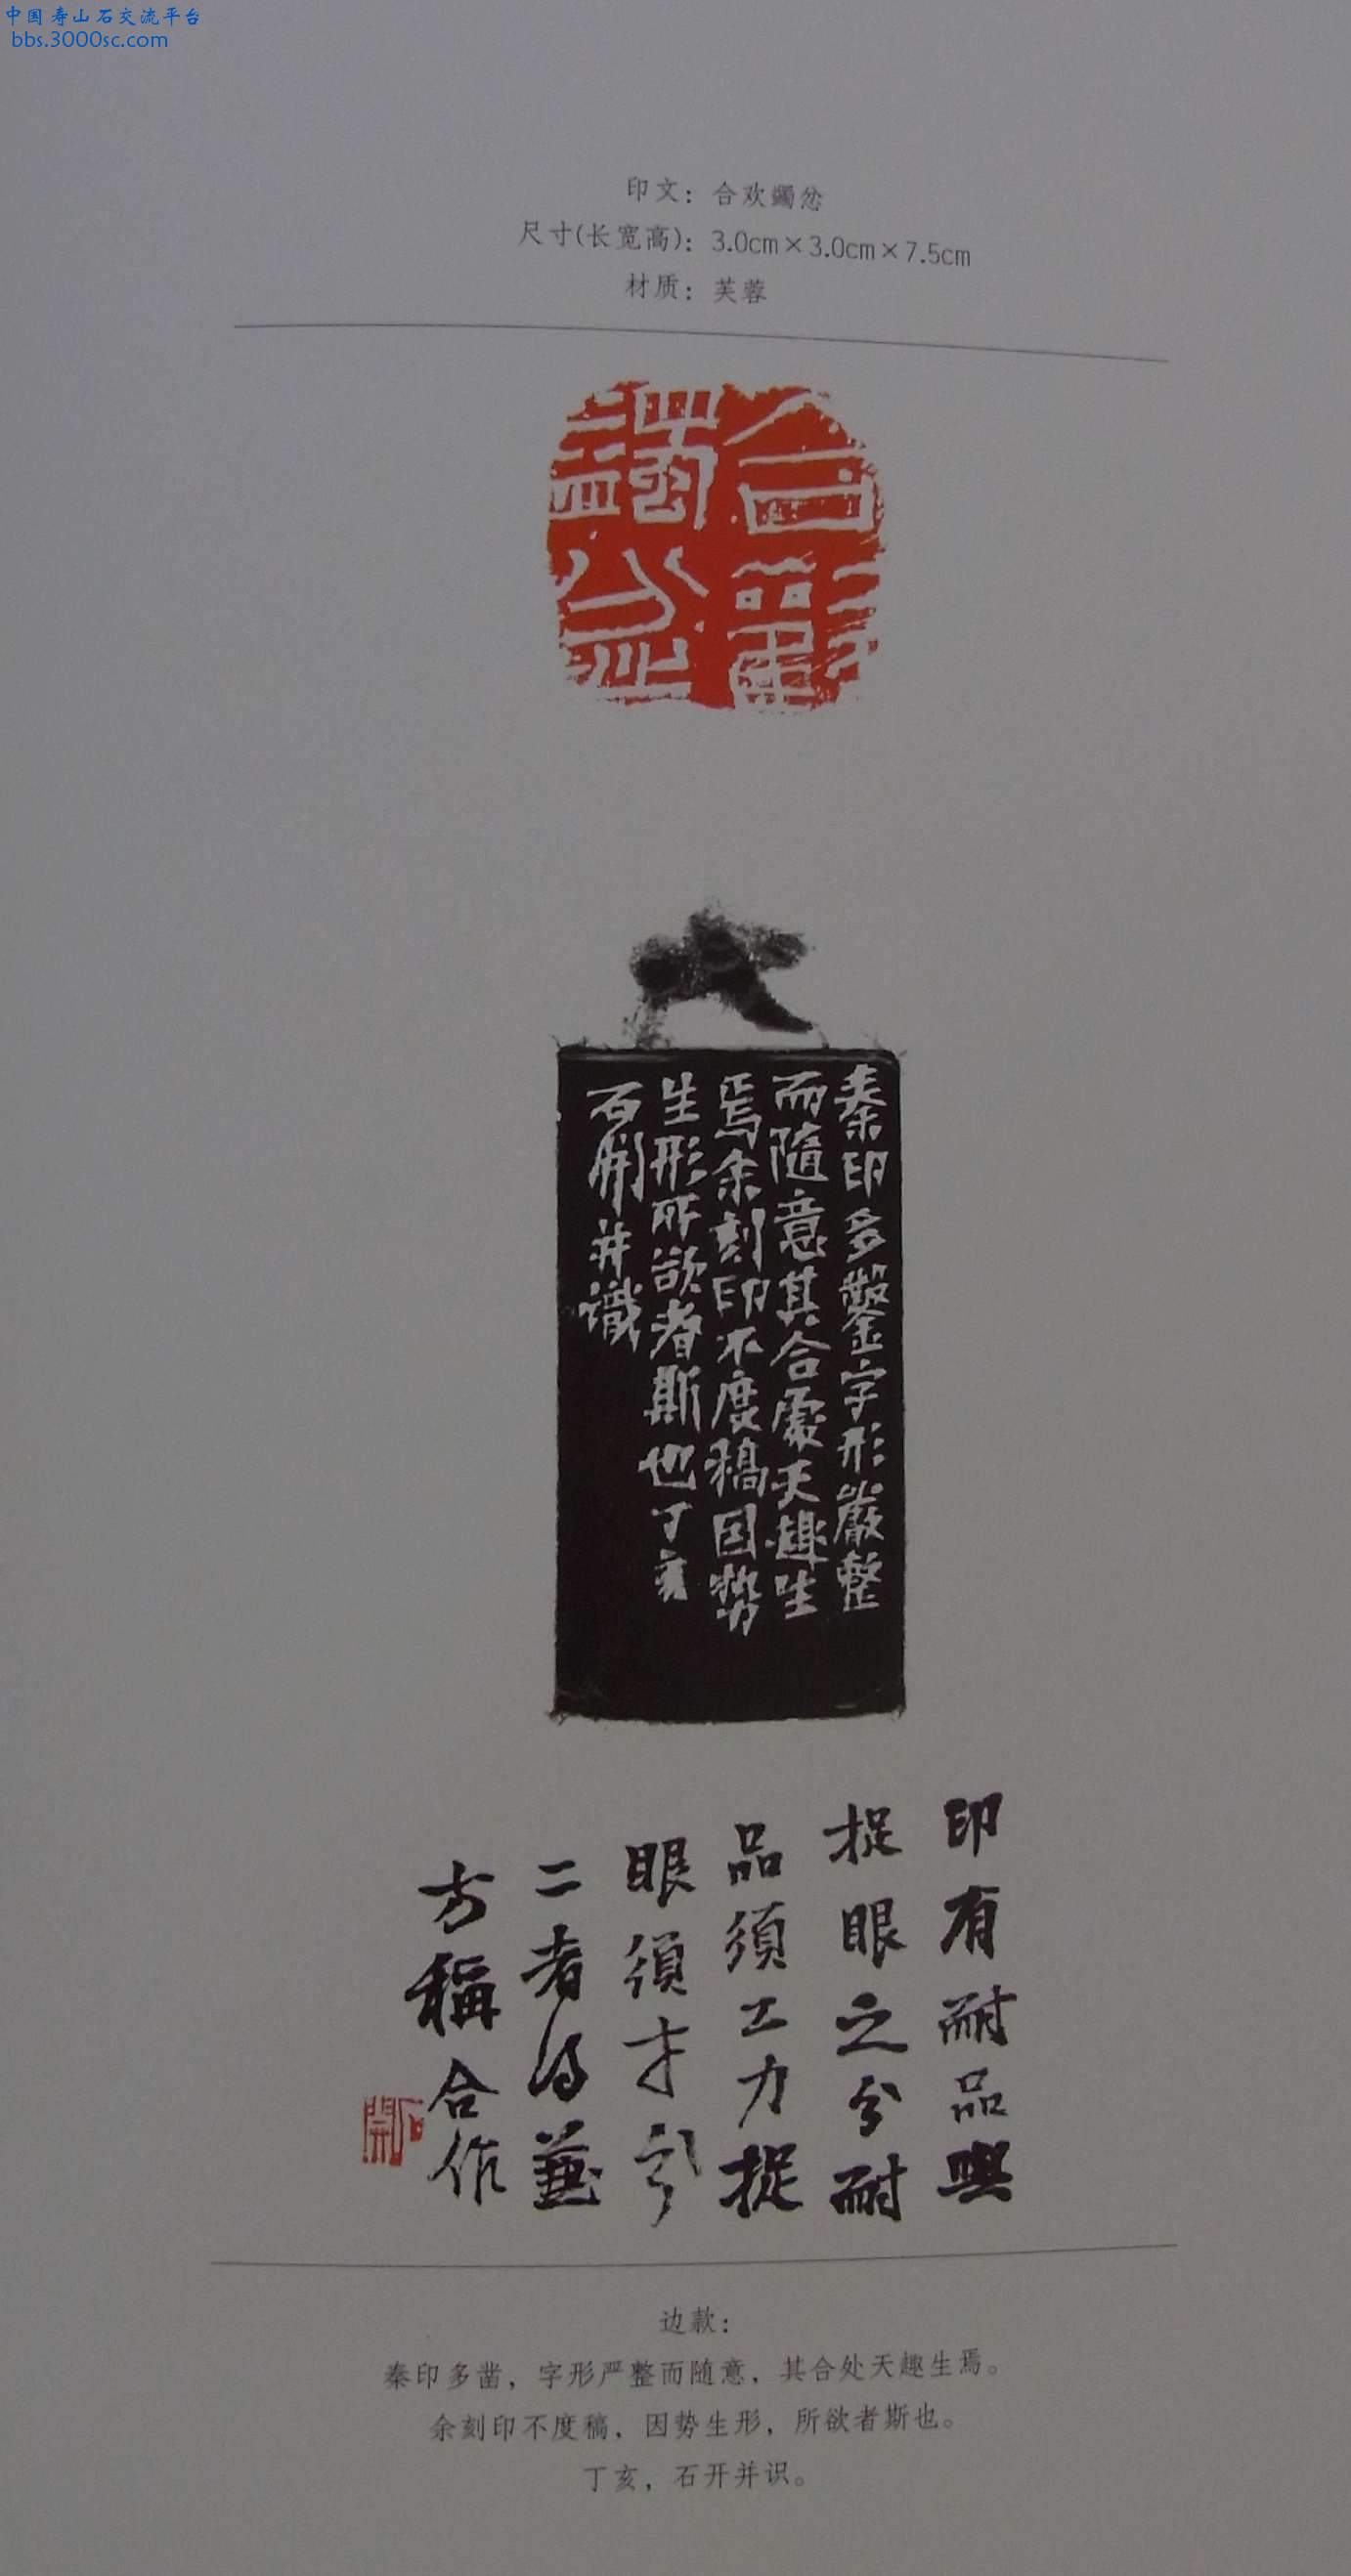 中国寿山石交流平台
bbs.3000sc.com
印文：合欢蠲忿
尺寸(长宽高)：3.0cm×3.0cm×7.5cm
材质：芙蓉
合歡
蠲忿
秦印多鑿字形嚴整
而隨意其合處天趣生
焉余刻印不度稿因势
生形所欲者斯也丁亥
石開并識
印有耐品與
捉眼之分耐
品須工力捉
眼須才氣
二者得兼
方稱合作
石開
边款：
秦印多凿，字形严整而随意，其合处天趣生焉。
余刻印不度稿，因势生形，所欲者斯也。
丁亥，石开并识。